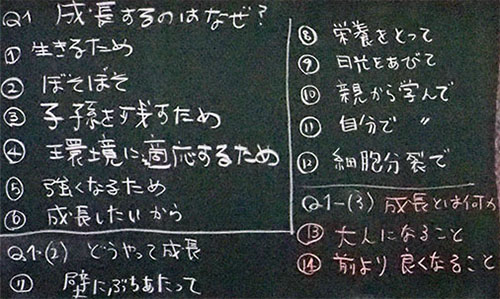 Q1 成長するのはなぜ?
① 生きるため
② ぼそぼそ
③ 子孫を残すため
④ 環境に適応するため
⑤ 強くなるため
⑥ 成長したいから
Q1-(2) どうやって成長
⑦ 壁にぶちあたって
⑧ 栄養をとって
⑨ 日光をあびて
⑩ 親から学んで
⑪ 自分で 〃
⑫ 細胞分裂で
Q1-(3) 成長とは何か
⑬ 大人になること
⑭ 前より良くなること